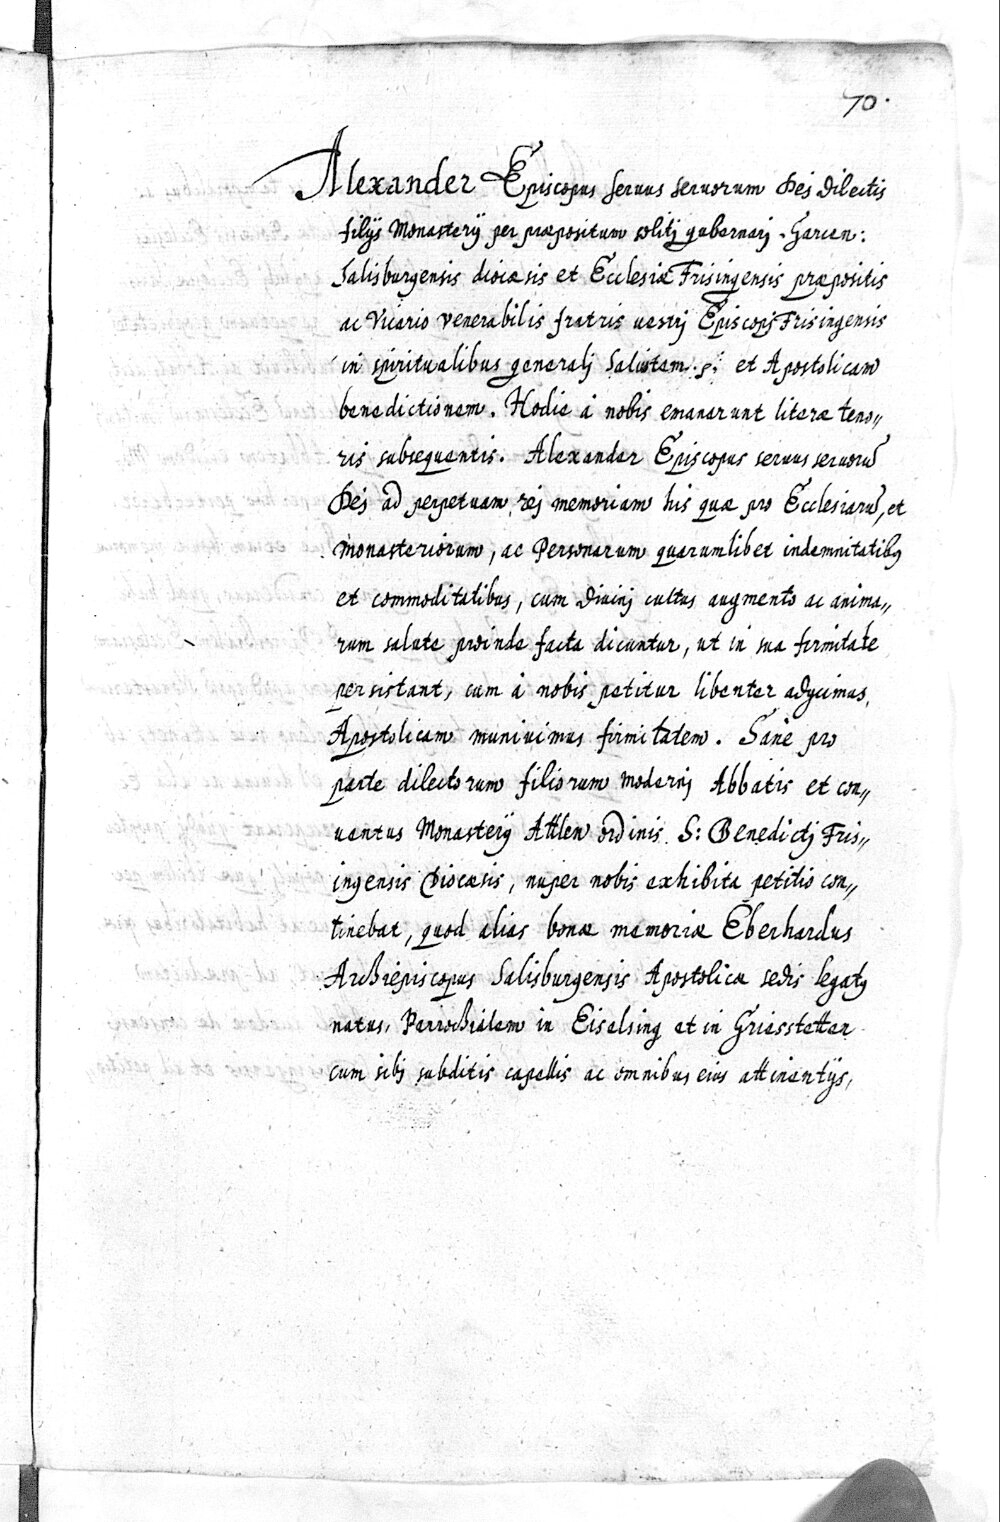 70.
Alexander Episcopus seruus seruorum Dej dilectis
filijs Monasterij per præpositum solitj gubernarj Garcen:
Salisburgensis diocæsis et Ecclesiæ Frisingensis præpositis
ac Vicario venerabilis fratris uestrj Episcopj Frisingensis
in spiritualibus generalj Salutem et Apostolicam
benedictionem. Hodie à nobis emanarunt literæ teno„
ris subsequentis. Alexander Episcopus seruus seruorū
Dej ad perpetuam rej memoriam his quæ pro Ecclesiarū, et
monasteriorum, ac Personarum quarumlibet indemnitatibus
et commoditatibus, cum diuinj cultus augmento ac anima„
rum salute proinde facta dicuntur, ut in sua firmitate
persistant, cum à nobis petitur libenter adycimus,
Apostolicam muniuimus firmitatem. Sanè pro
parte dilectorum filiorum modernj Abbatis et con„
uentus Monasterij Attlen ordinis S: Benedictj Fris„
ingensis Diocæsis, nuper nobis exhibita petitio con„
tinebat, quod alias bonæ memoriæ Eberhardus
Archiepiscopus Salisburgensis Apostolicæ sedis legatus
natus, Parrochialem in Eiselsing et in Griesstetter
cum sibj subditis capellis ac omnibus eius attinentijs,